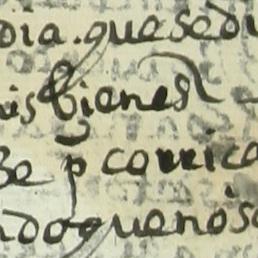 dia. que se di
is bienes
se p corrica
ndo que no s